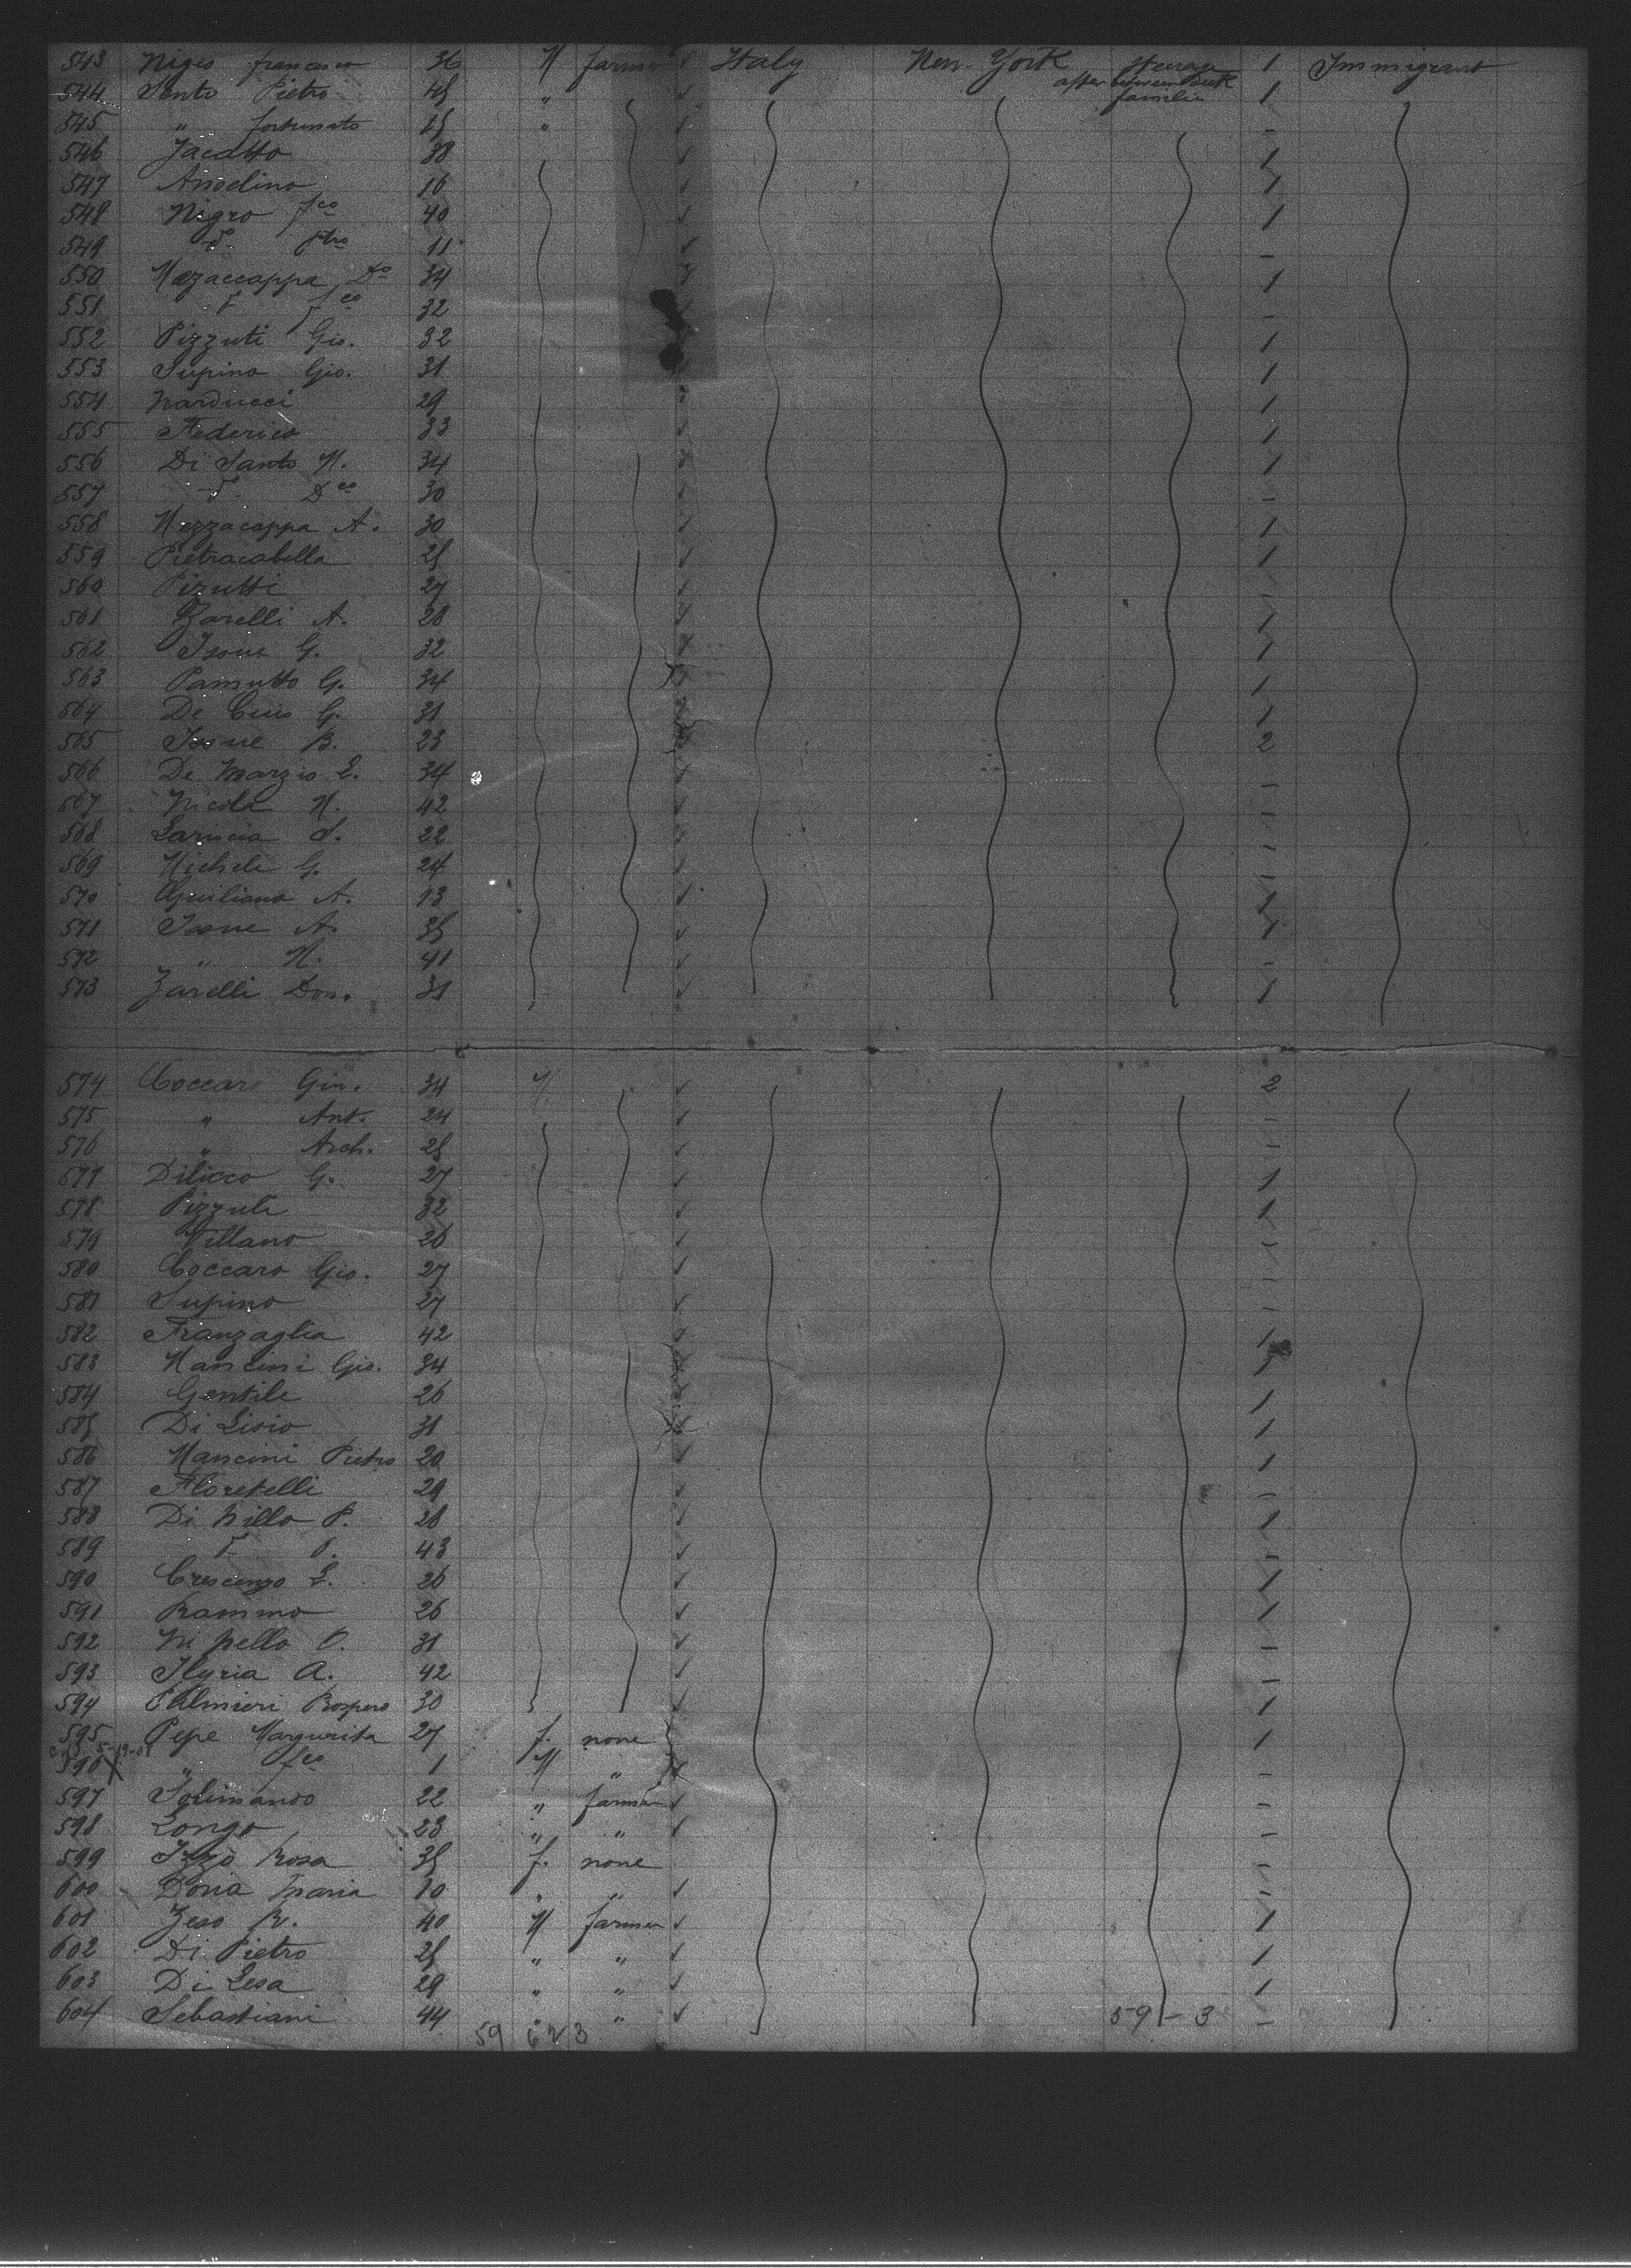 543 Nigro francesco 36 M farmer ✓ Italy New-York Steerage 1 Immigrant
544 Santo Pietro 45 " ✓ after between deck 1
familie
545 " fortunato 15 " ✓ -
546 Jacatto 38 ✓ 1
547 Anselino 16 ✓ 1
548 Nigro fco 40 ✓ 1
549 11 ✓ -
550 Mezaccappa Do 34 ✓ 1
551 fco 32 -
552 Pizzuti Gio. 32 1
553 Supino Gio. 31 1
554 Narducci 29 ✓ 1
555 Federico 33 ✓ 1
556 Di Santo M. 34 ✓ 1
557 Dco 30 ✓ -
558 Mezzacappa A. 30 ✓ 1
559 Pietracabella 25 ✓ 1
560 Pizutti 27 ✓ -
561 Zarelli A. 28 ✓ 1
562 Isone G. 32 ✓ 1
563 Pamutto G. 34 1
564 De Cuis G. 31 1
565 Isone B. 23 2
566 De Marzio L. 34 ✓ -
567 Nicola M. 42 ✓ -
568 Lariscia S. 22 ✓ -
569 Michele G. 24 ✓ -
570 Giuliano A. 13 ✓ 1
571 Isone A. 35 ✓ 1
572 " M. 41 ✓ -
573 Zarelli Don. 31 ✓ 1
574 Coccaro Gin. 34 ✓ 2
575 " Ant. 24 ✓ -
576 " Arch. 25 ✓ -
577 Dilicco G. 27 ✓ 1
578 Pizzuti 32 ✓ 1
579 Villano 26 ✓ -
580 Coccaro Gio. 27 ✓ -
581 Supino 27 ✓ -
582 Franzaglia 42 ✓ 1
583 Mancini Gio. 34 1
584 Gentile 26 1
585 Di Lisio 31 1
586 Mancini Pietro 20 ✓ 1
587 Floretelli 29 ✓ -
588 Di Nillo P. 28 ✓ 1
589 43 ✓ -
590 Crescenzo L. 26 ✓ 1
591 Rammo 26 ✓ 1
592 31 ✓ -
593 Ilyria A. 42 ✓ -
594 Palmieri Prospero 30 ✓ 1
595 Pepe Margurita 27 f. none 1
596 X " fco 1 M " -
597 Solimando 22 " farmer ✓ -
598 Longo 23 " " ✓ -
599 Izzo Rosa 35 f. none -
600 Doria Maria 10 " " ✓ -
601 Zeso R. 40 M farmer ✓ 1
602 Di Pietro 25 " " ✓ 1
603 Di Lesa 29 " " ✓ 1
604 Sebastiani 44 " " ✓ 59 - 3 -
59 623